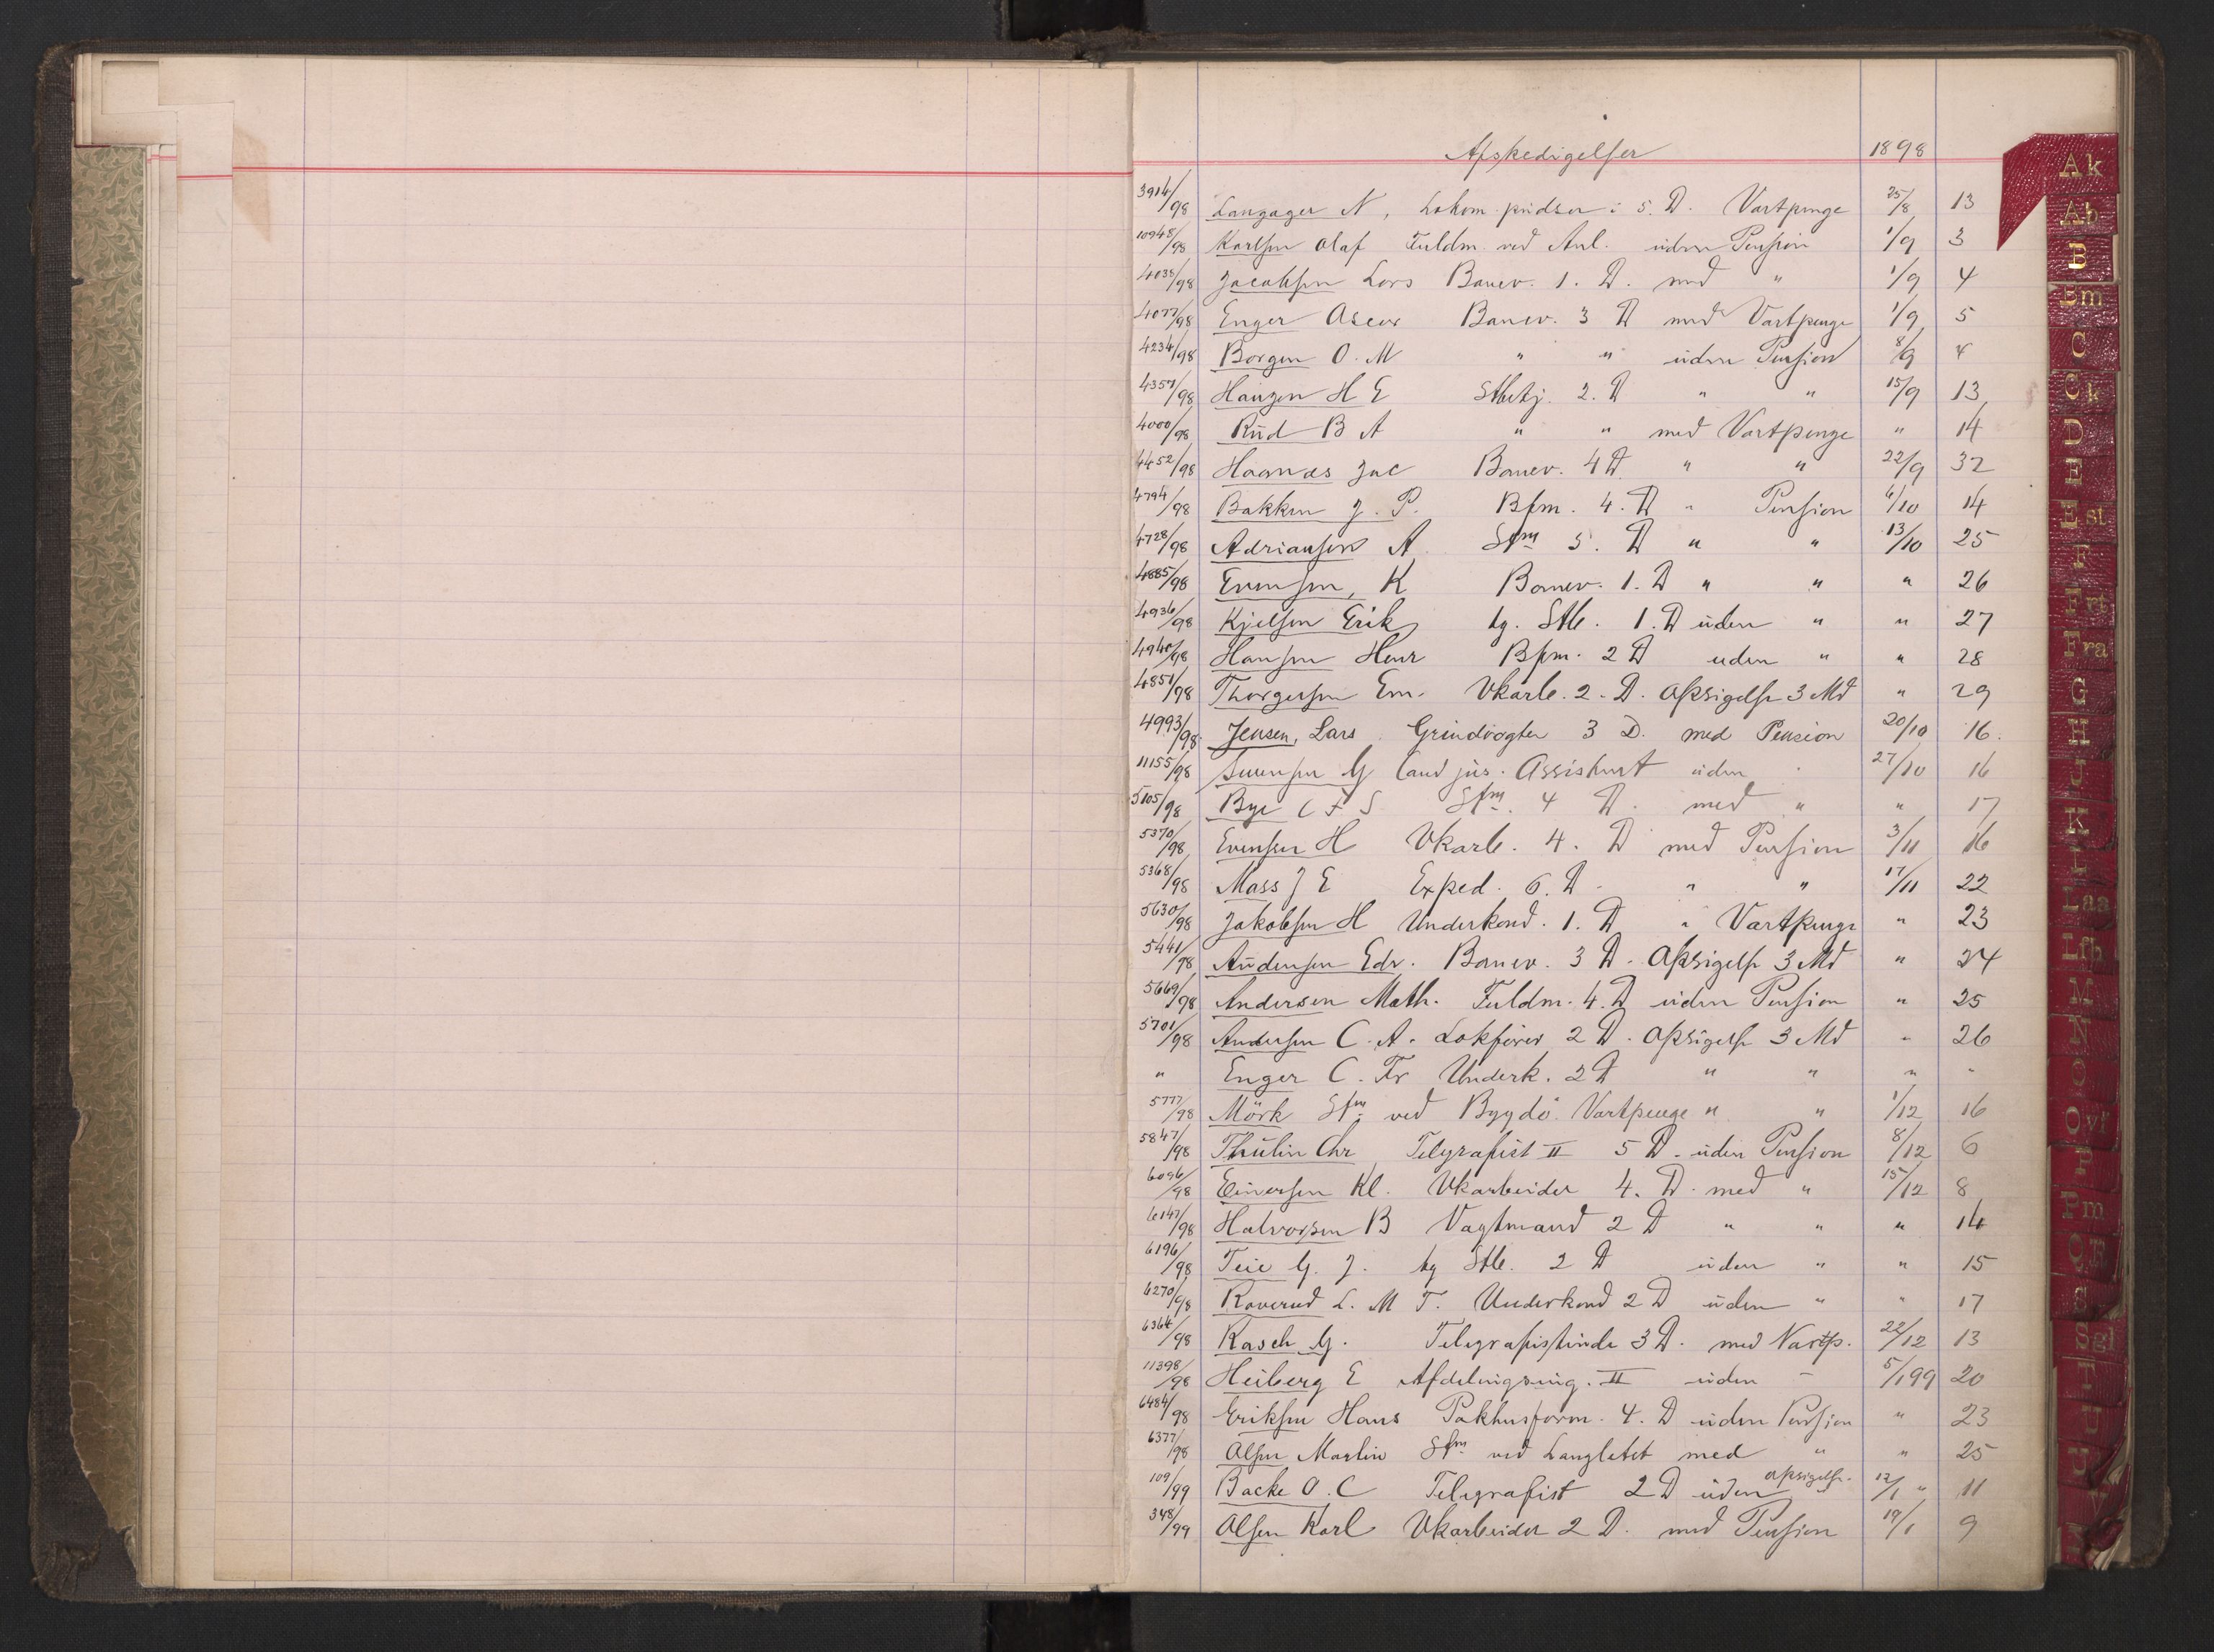 Afskedigelser 1898
3914/98 Langager N, Lokom. pudser i 5. D. Vartpenge 25/8 13
10948/98 Karlsen Olaf Fuldm. ved Anl. uden Pension 1/9 3
4038/98 Jacobsen Lars Banev. 1. D. med " 1/9 4
4077/98 Enger Oscar Banev. 3 D med Vartpenge 1/9 5
4234/98 Borgen O. M " " uden Pension 8/9 4
4357/98 Hansen H E Stbetj. 2. D " " 15/9 13
4000/98 Rud B A " " med Vartpenge " 14
4452/98 Haanæs Jac Banev. 4 D. " " 22/9 32
4794/98 Bakken J. P. Bfm. 4. D " Pension 6/10 14
4728/98 Adriansen A Stm 5. D " " 13/10 25
4885/98 Evensen, K Banev. 1. D " " " 26
4936/98 Kjelsen Erik tg. Stb. 1. D uden " " 27
4940/98 Hansen Henr Bfm. 2 D uden " " 28
4851/98 Thorgersen Em. Vkarb. 2. D. Opsigelse 3 Md " 29
4993/98 Jensen, Lars. Grindvogter 3 D. med Pension 20/10 16.
11155/98 Svensen G Cand jur. Assistent uden " 27/10 16
5105/98 Bye C F S Stm. 4 D. med " " 17
5370/98 Evensen H Vkarb. 4. D med Pension 3/11 16
5368/98 Mass J E Exped. 6. D. " " 17/11 22
5630/98 Jakobsen H Underkond. 1. D " Vartpenge " 23
5441/98 Audensen Edv. Banev. 3 D. Opsigelse 3 Md " 24
5669/98 Andersen Math. Fuldm. 4. D uden Pension " 25
5701/98 Andersen C. A. Lokfører 2 D. Opsigelse 3 Md " 26
" Enger C. Fr Underk. 2 D " " " "
5777/98 Mörk Stm. ved Bygdö. Vartpenge " " 1/12 16
5847/98 Thulin Chr Telegrafist II 5 D. uden Pension 8/12 6
6096/98 Einersen Kl. Vkarbeider 4. D. med " 15/12 8
6147/98 Halvorsen B Vagtmand 2 D " " " 14
6196/98 Teie G. J. tg Stb. 2 D uden " " 15
6270/98 Roverud L. M T. Underkond 2 D uden " " 17
6364/98 Rasch G. Telegrafistinde 3 D. med Vartp. 22/12 13
11398/98 Heiberg E Afdelingsing. II uden - 5/1 99 20
6484/98 Eriksen Hans Pakhusform. 4. D uden Pension " 23
6377/98 Olsen Martin Stm. ved Langletet med " " 25
109/99 Backe O. C Telegrafist 2 D uden opsigelse. " 12/1 " 11
348/99 Olsen Karl Vkarbeider 2 D. med Pension 19/1 9
Ak
Ab
B
Bm
C
Ck
D
E
Est
F
Fra
G
H
J
K
L
Laa
Lfb
M
N
O
Ovf
P
Pm
S
Sgl
T
U